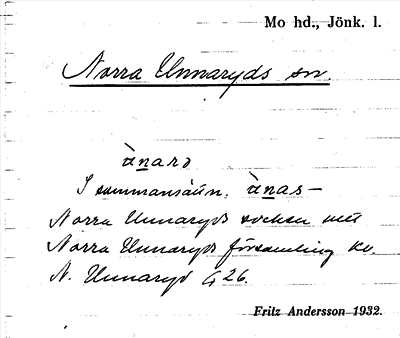 Mo hd., Jönk. l.
Norra Unnaryds sn.
ànard
I sammansättn. ànas-
Norra Unnaryds socken
Norra Unnaryds församling
N. Unnaryd G 26.
Fritz Andersson 1932.